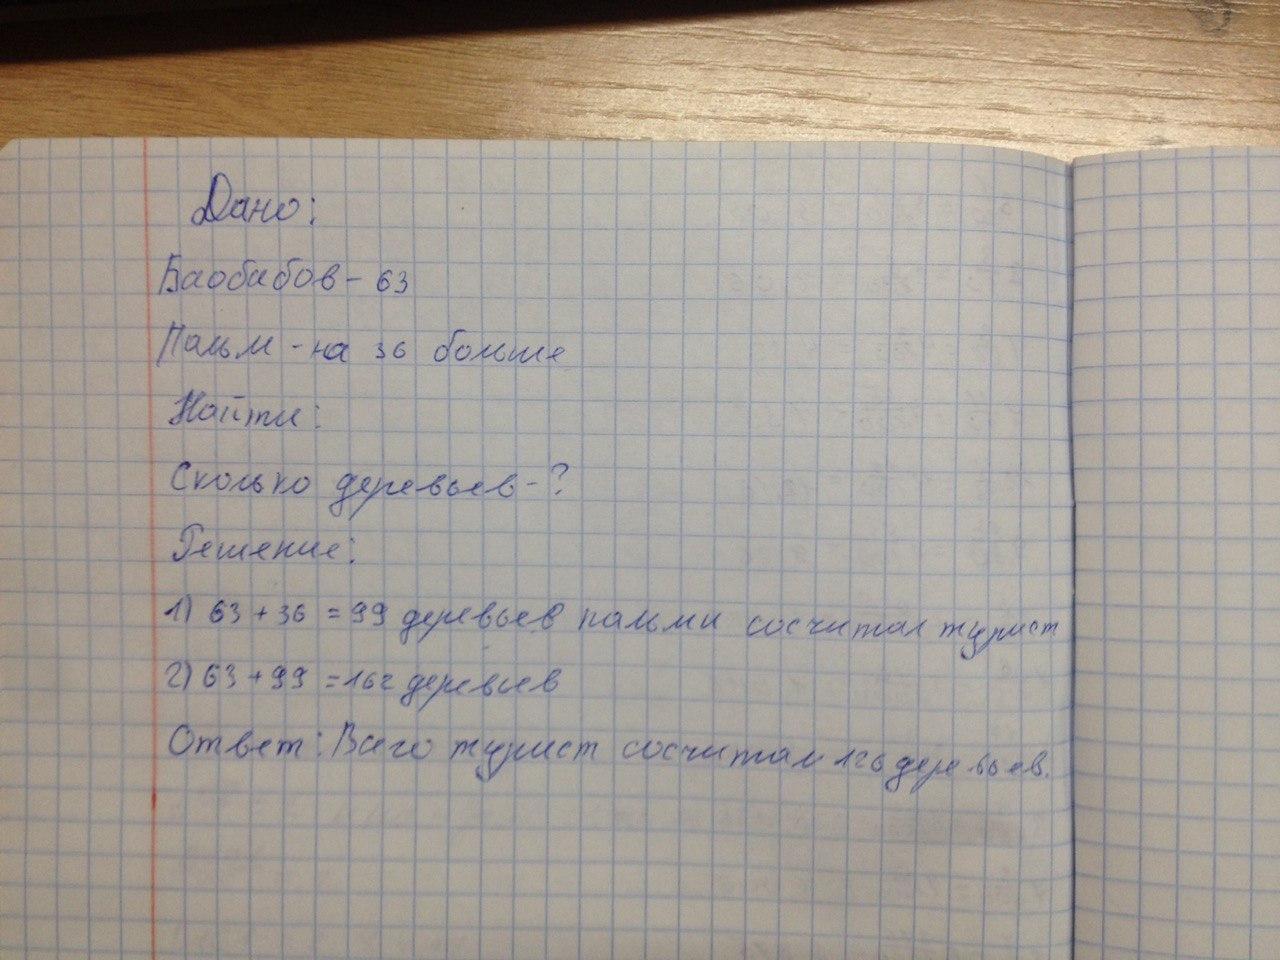 Дано:
Баобабов - 63
Пальм - на 36 больше
Найти:
Сколько деревьев - ?
Решение:
1) 63 + 36 = 99 деревьев пальми сосчитал турист
2) 63 + 99 = 162 деревьев
Ответ: Всего турист сосчитал 126 деревьев.